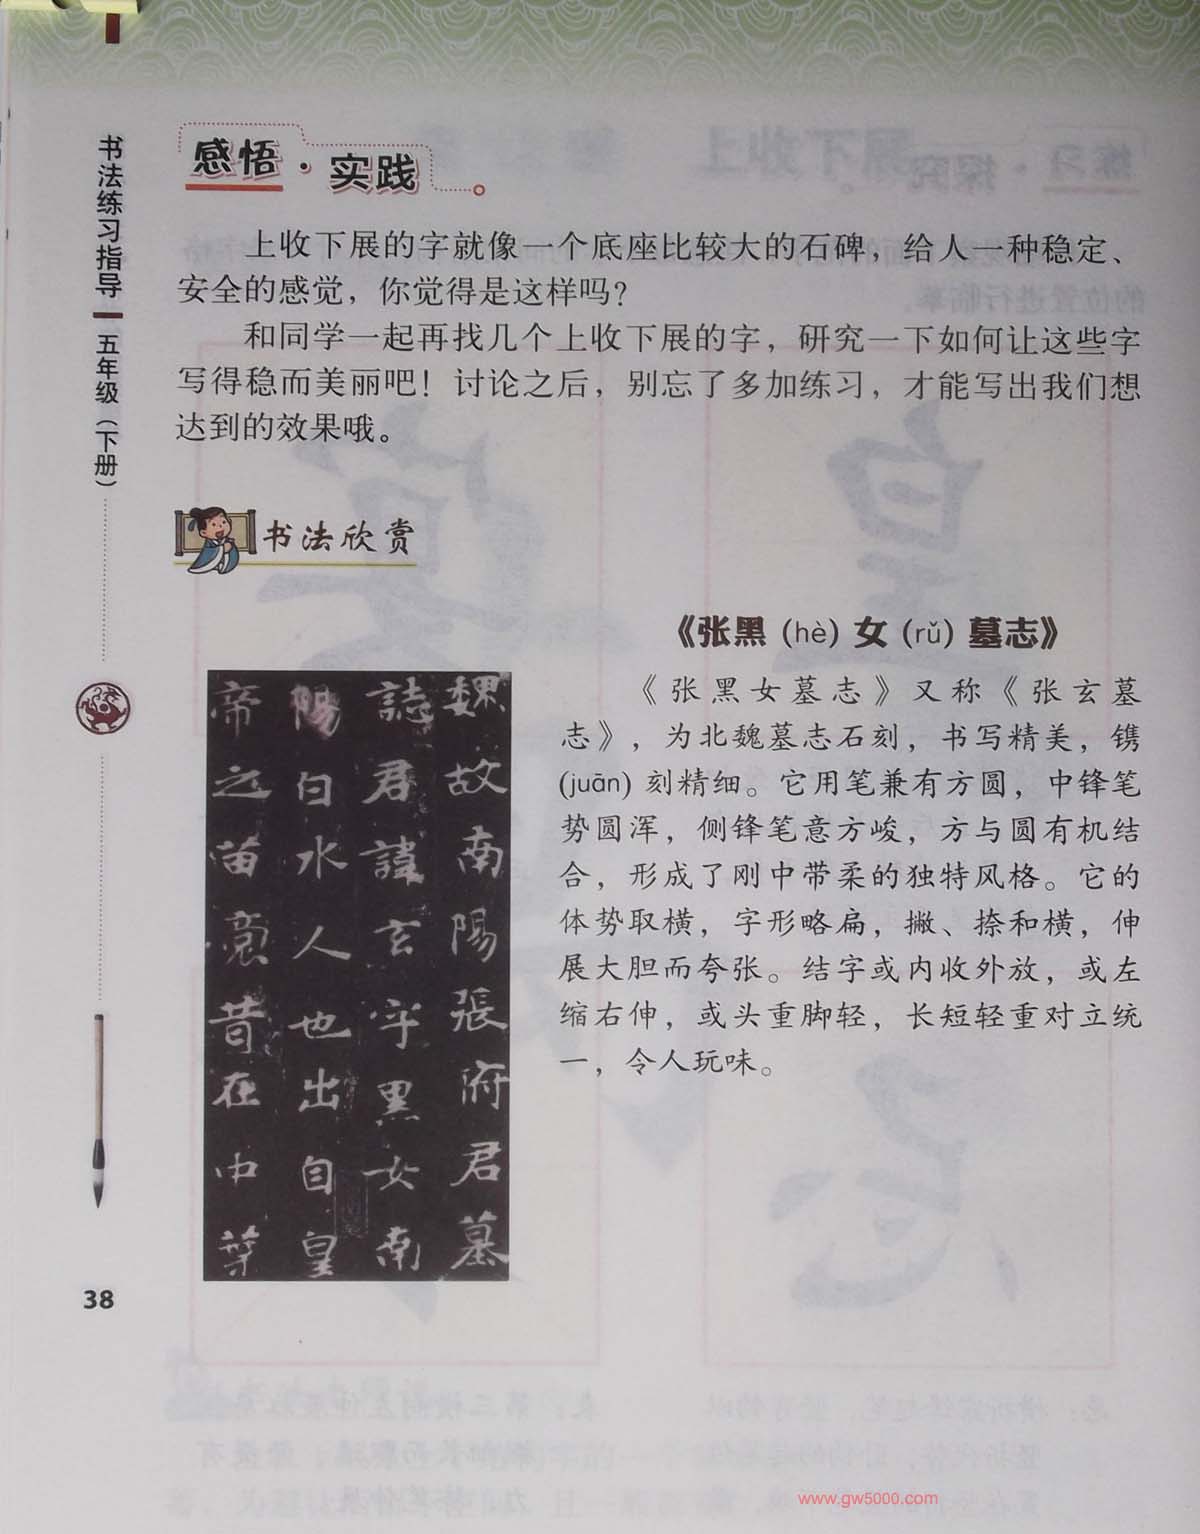 书法练习指导 五年级（下册）
感悟·实践
上收下展的字就像一个底座比较大的石碑，给人一种稳定、
安全的感觉，你觉得是这样吗？
和同学一起再找几个上收下展的字，研究一下如何让这些字
写得稳而美丽吧！讨论之后，别忘了多加练习，才能写出我们想
达到的效果哦。
书法欣赏
《张黑（hè）女（rǔ）墓志》
《张黑女墓志》又称《张玄墓
志》，为北魏墓志石刻，书写精美，镌
(juān) 刻精细。它用笔兼有方圆，中锋笔
势圆浑，侧锋笔意方峻，方与圆有机结
合，形成了刚中带柔的独特风格。它的
体势取横，字形略扁，撇、捺和横，伸
展大胆而夸张。结字或内收外放，或左
缩右伸，或头重脚轻，长短轻重对立统
一，令人玩味。
魏故南陽張府君墓
誌君諱玄字黑女南
陽白水人也出自皇
帝之苗裔昔在中葉
38
www.gw5000.com